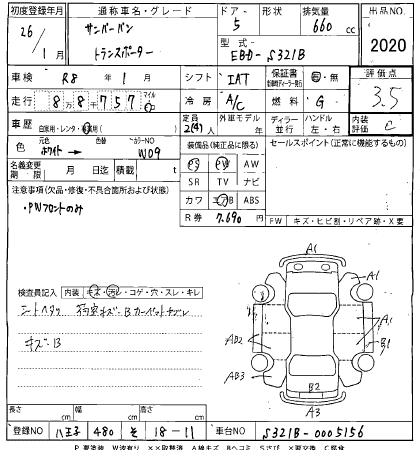 初度登録年月 通称車名・グレード ドアー 形状 排気量 出品NO.
26/1月 サンバーバン トランスポーター 5 660cc 2020
型式 EBD-S321B
車検 R8年1月 シフト IAT 保証書 有・無 評価点 3.5
走行 8万8千757 マイル 冷房 A/C 燃料 G
車歴 自家用・レンタ・ 定員 2(4)人 外車モデル 年 ディーラー 並行 ハンドル 左・右 内装評価 C
色 元色 ホワイト 色替 カラーNO W09
装備品(純正品に限る) セールスポイント(正常に機能するもの)
名義変更期限 月 日迄 積載 t
PS PW AW
SR TV ナビ
カワ エアB ABS
R券 7,690円
注意事項(欠品・修復・不具合箇所および状態)
・PWフロントのみ
FW キズ・ヒビ割・リペア跡・X要
検査員記入 内装 キズ・汚レ・コゲ・穴・スレ・キレ
シートヘタリ 荷室キズ・B カーペットヤブレ
キズ・B
A1
A1
AB2 A1
B1
AB3
B2
A3
長さ cm 幅 cm 高さ cm
登録NO 八王子 480 そ 18-11 車台NO S321B-0005156
P要塗装 W波有り XX取替済 A線キズ Bヘコミ Sさび X要交換 C腐食